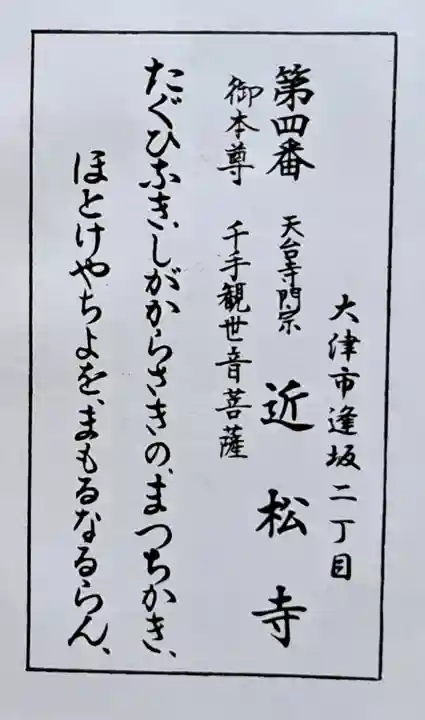 大津市逢坂二丁目
第四番 天台寺門宗 近松寺
御本尊 千手観世音菩薩
たぐひなき、しがからさきの、まつちかき、
ほとけやちよを、まもるなるらん、